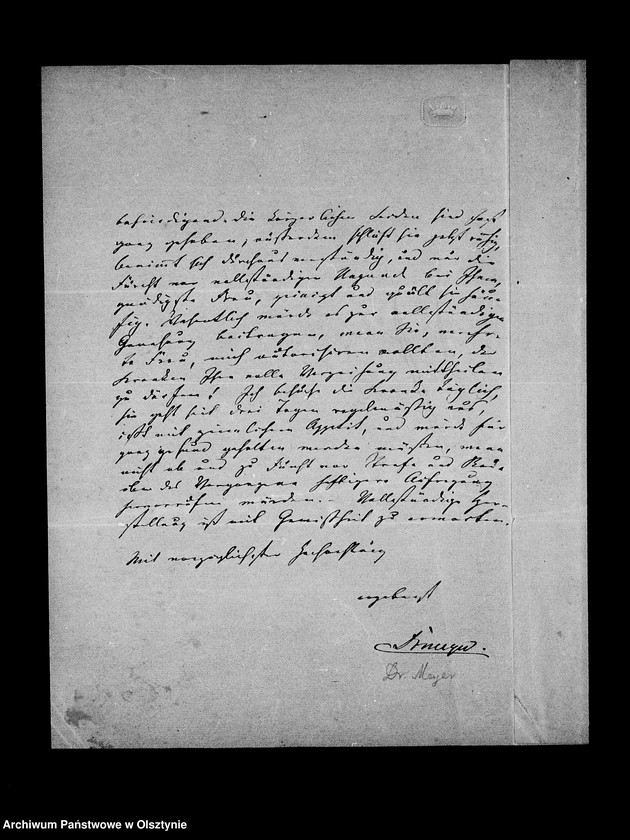 befriedigend. die körperlichen Leiden sind fast
ganz gehoben, außerdem schläft sie jetzt ruhig,
benimmt sich durchaus verständig, und nur die
Furcht vor vollständiger Ungnade bei Ihnen,
gnädigste Frau, peinigt und quält sie häu-
fig. Wesentlich würde es zur vollständigen
Genesung beitragen, wenn Sie, verehr-
te Frau, mich autorisiren wollten, der
Kranken Ihre volle Verzeihung mittheilen
zu dürfen! Ich besuche die Kranke täglich,
sie geht seit drei Tagen regelmäßig aus,
ißt mit ziemlichem Appetit, und würde für
ganz gesund gehalten werden müssen, wenn
nicht ab und zu Furcht vor Strafe und
des Vergangenen heftigere Aufregung
hervorrufen würden. - Vollständige Her-
stellung ist mit Gewißheit zu erwarten.
Mit vorzüglichster Hochachtung
ergebenst
Drmeyer.
Dr. Meyer
Archiwum Państwowe w Olsztynie